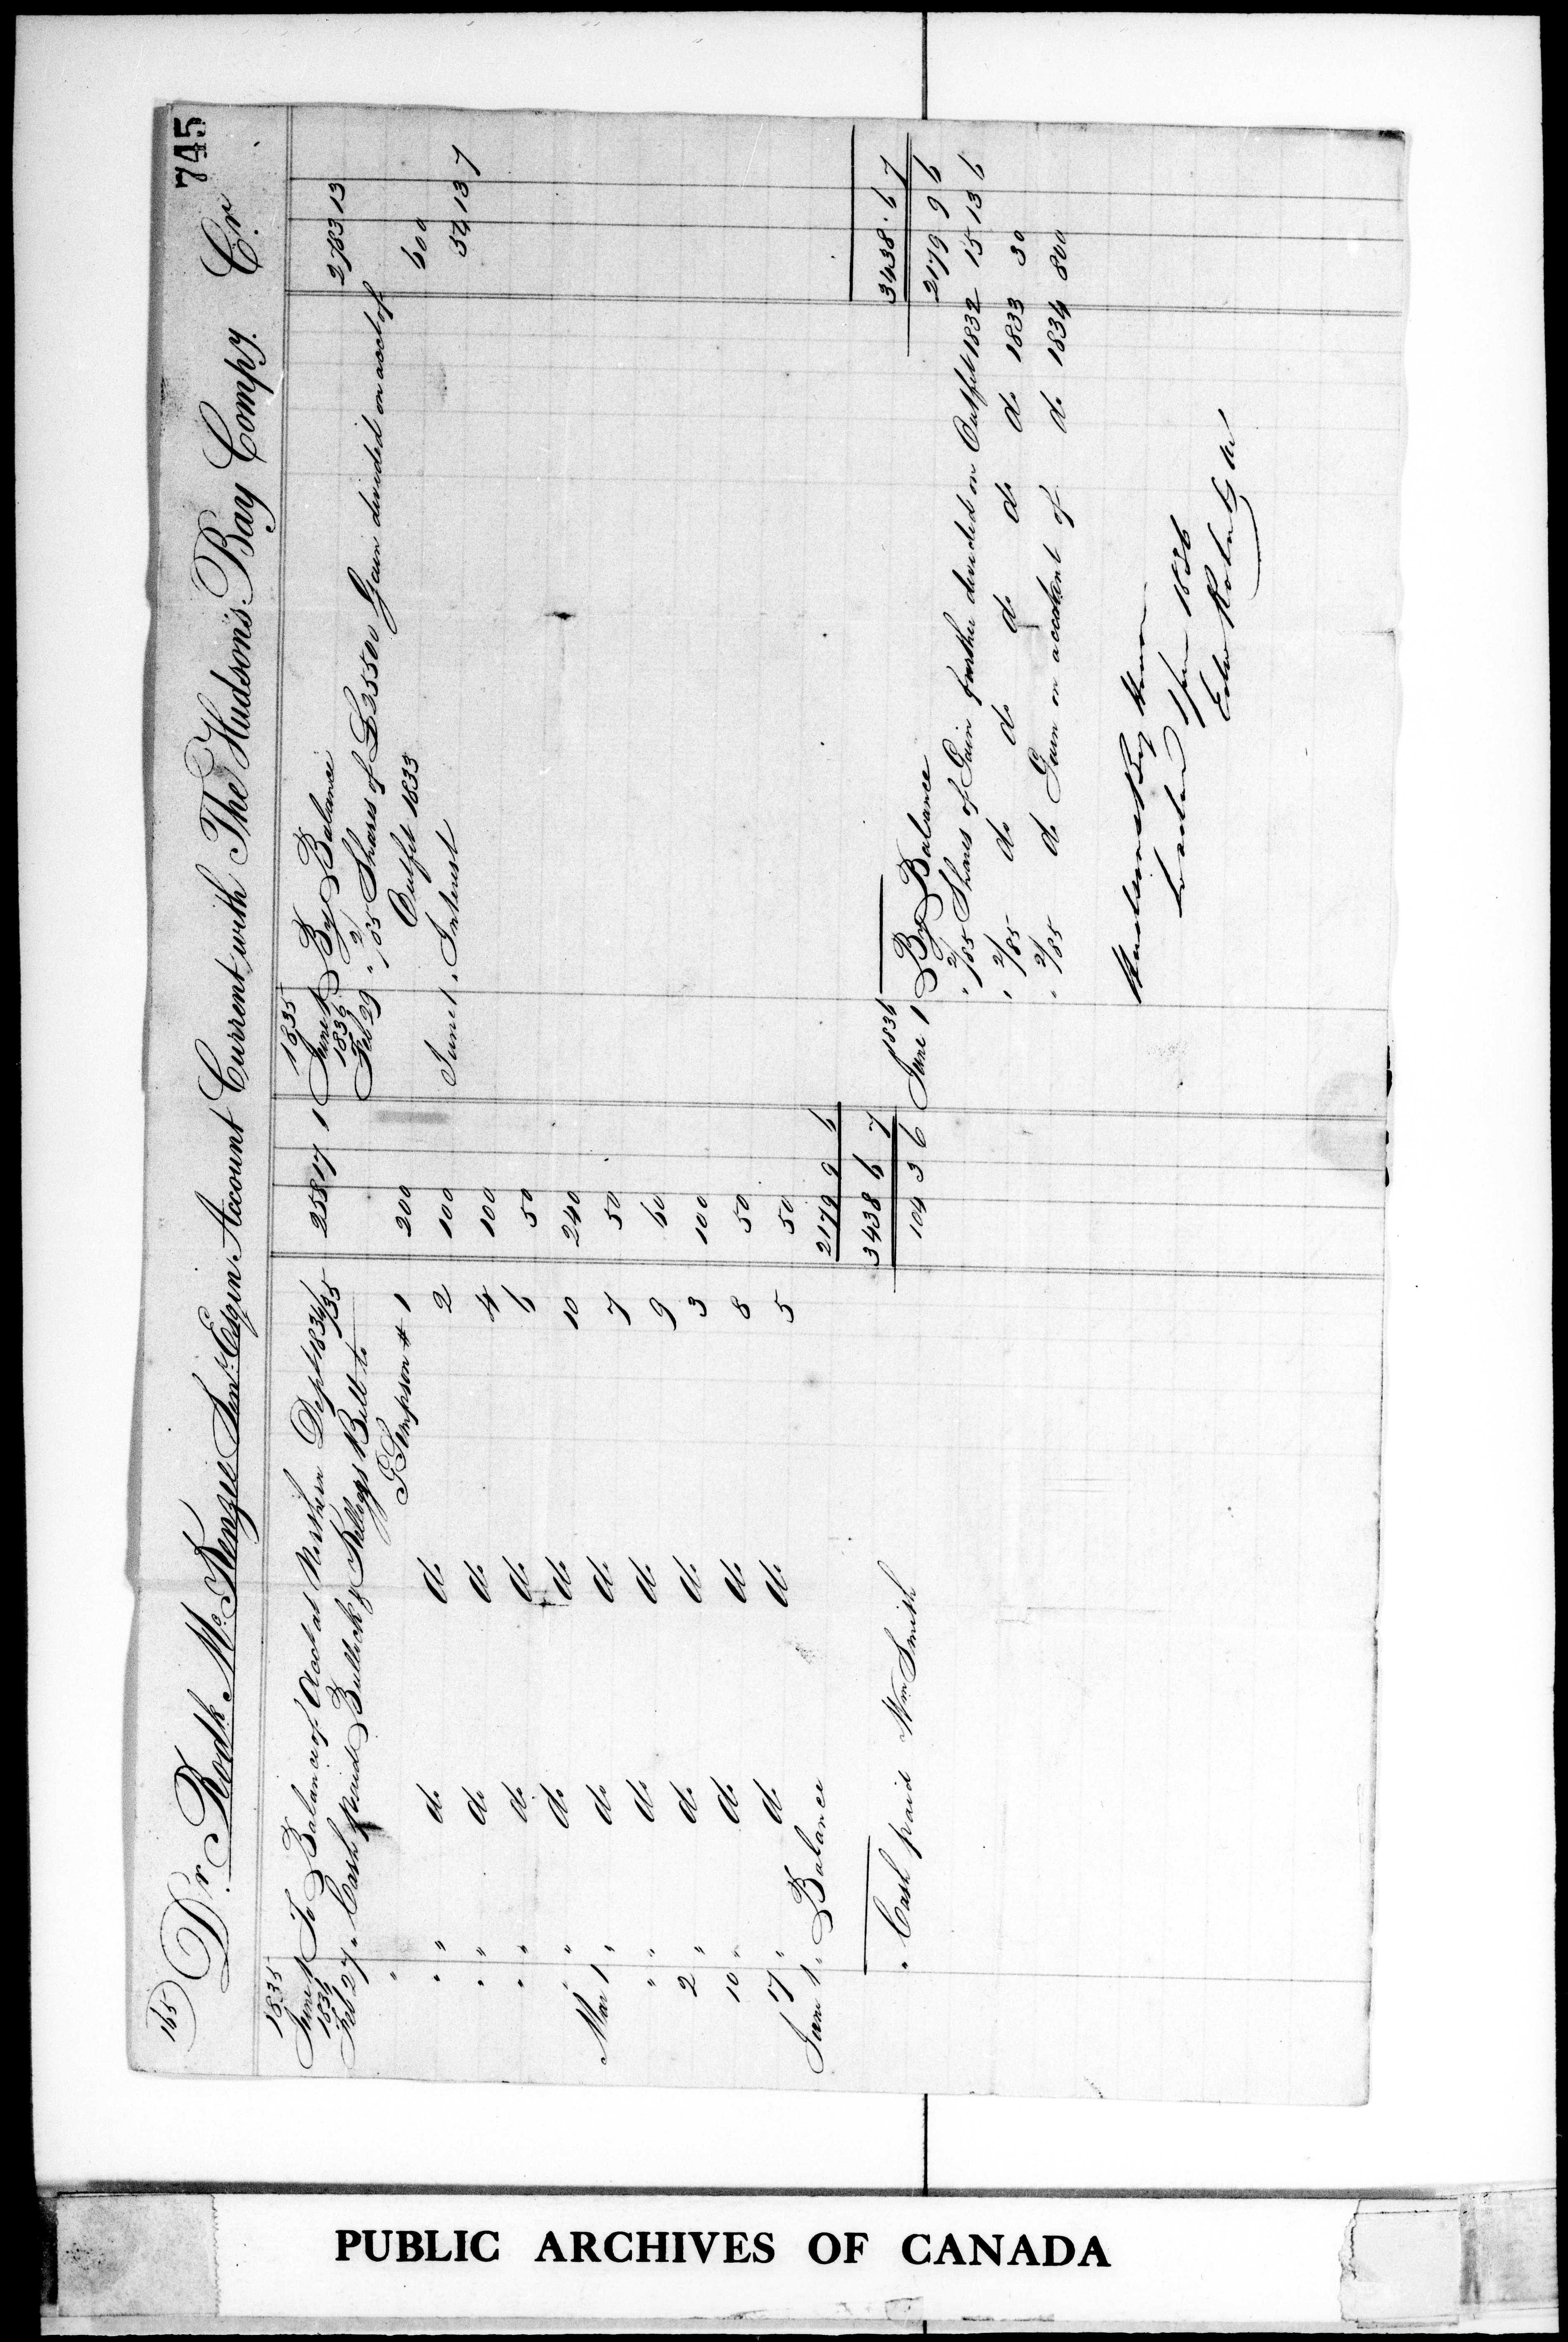 745
165
Dr. Rodk. McKenzie Senr. Esq in Account Current with The Hudson's Bay Compy. Cr.
1835
June 1 To Balance of Acct at Northern Dept 1834/35 258 17 1
1836
Feb 27 " Cash paid Bullock & Kelloggs Bill to
" G Simpson # 1 200
" " do do 2 100
" " do do 4 100
" " do do 6 50
" " do do 10 240
Mar 1 " do do 7 50
" " do do 9 60
2 " do do 3 100
10 " do do 8 50
17 " do do 5 50
June 1 " Balance 2179 9 6
3438 6 7
" Cash paid Wm Smith 104 3 6
1835
June 1 By Balance 2783 13
1836
Feb 29 " 2/85 Shares of £25500 Gain divided on acct of
Outfit 1833 600
June 1 " Interest 54 13 7
3438 . 6 7
1836
June 1 By Balance 2179 9 6
" 2/85 Shares of Gain further divided on Outfit 1832 15 13 6
" 2/85 do do do do do 1833 30
" 2/85 do Gain on account of do 1834 800
Hudsons Bay House
London 1 June 1836